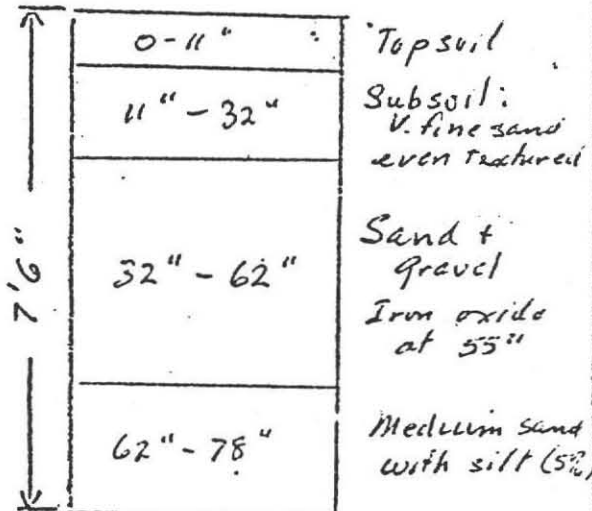 0-11" Topsoil
11"-32" Subsoil:
V. fine sand
even textured
7'6"
32"-62" Sand +
gravel
Iron oxide
at 55"
62"-78" Medium sand
with silt (5%)